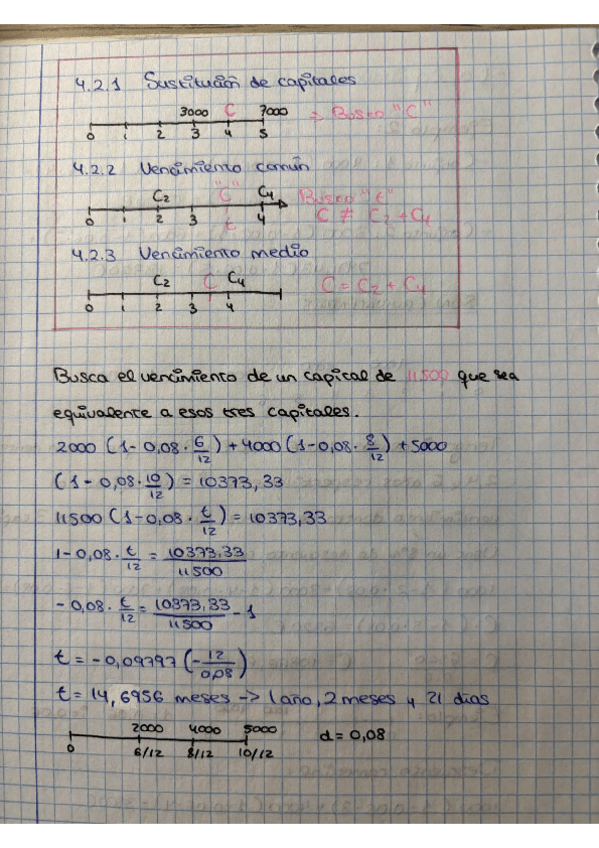 4.2.1 Sustitución de capitales
3000 C 7000 => Busco "C"
0 1 2 3 4 5
4.2.2 Vencimiento común
C2 "C" C4 Busco "t"
0 1 2 3 t 4 C ≠ C2 + C4
4.2.3 Vencimiento medio
C2 C C4 C = C2 + C4
0 1 2 3 4
Busca el vencimiento de un capital de 11500 que sea
equivalente a esos tres capitales.
2000 (1 - 0,08 · 6/12) + 4000 (1 - 0,08 · 8/12) + 5000
(1 - 0,08 · 10/12) = 10373,33
11500 (1 - 0,08 · t/12) = 10373,33
1 - 0,08 · t/12 = 10373,33/11500
- 0,08 · t/12 = 10373,33/11500 - 1
t = -0,09797 (- 12/0,08)
t = 14,6956 meses -> 1 año, 2 meses y 21 días
2000 4000 5000 d = 0,08
0 6/12 8/12 10/12